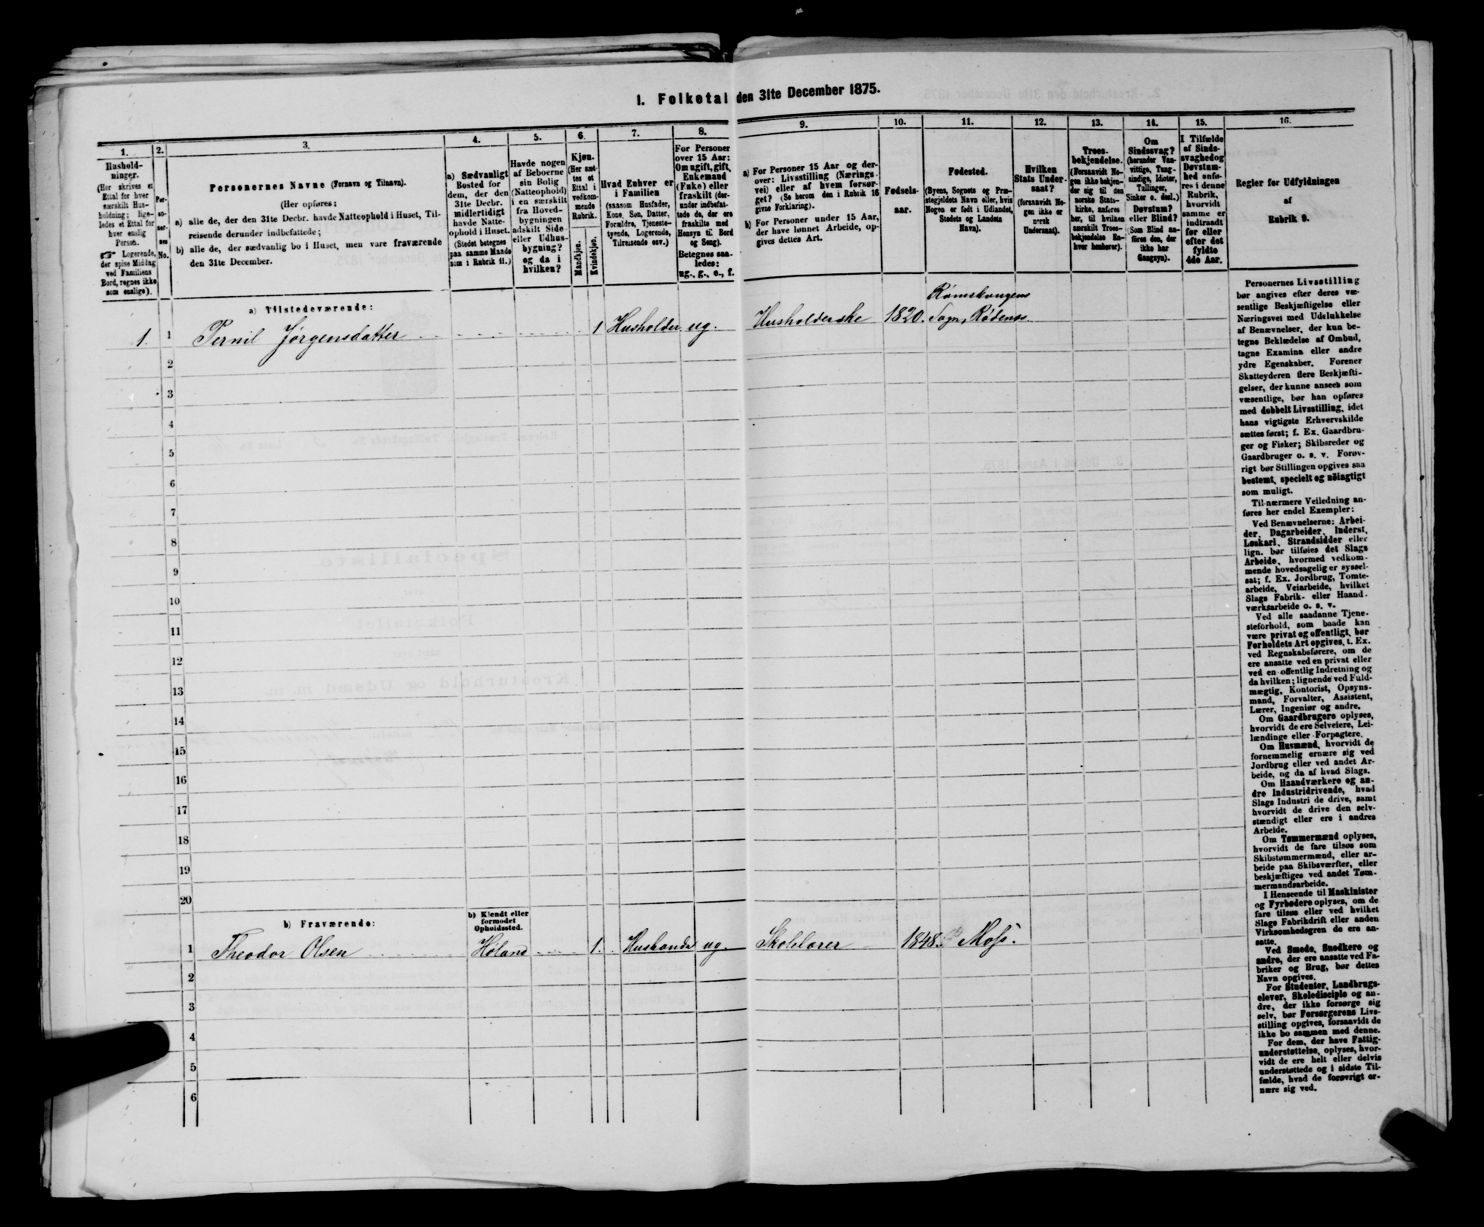 1. Folketal den 31te December 1875.
1.
Hushold-
ninger.
(Her skrives et
Ettal for hver
særskilt Hus-
holdning; lige-
ledes et Ettal for
hver enslig
Person.
☞ Logerende,
der spise Middag
ved Familiens
Bord, regnes ikke
som enslige).
2.
Per-
so-
ner-
nes
No.
3.
Personernes Navne (Fornavn og Tilnavn).
(Her opføres:
a) alle de, der den 31te Decbr. havde Natteophold i Huset, Til-
reisende derunder indbefattede;
b) alle de, der sædvanlig bo i Huset, men vare fraværende
den 31te December.
4.
a) Sædvanligt
Bosted for
dem, der den
31te Decbr.
midlertidigt
havde Natte-
ophold i Huset.
(Stedet betegnes
paa samme Maade
som i Rubrik 11.)
5.
Havde nogen
af Beboerne
sin Bolig
(Natteophold)
i en særskilt
fra Hoved-
bygningen
adskilt Side
eller Udhus-
bygning?
og da i
hvilken?
6.
Kjøn.
(Her sæt-
tes et
Ettal i
vedkom-
mende
Rubrik.
Mandkjøn.
Kvindekjøn.
7.
Hvad Enhver er
i Familien
(saasom Husfader,
Kone, Søn, Datter,
Forældre, Tjeneste-
tyende, Logerende,
Tilreisende osv.)
8.
For Personer
over 15 Aar:
Om ugift, gift,
Enkemand
(Enke) eller
fraskilt (der-
under indbefat-
tede de, der ere
fraskilte med
Hensyn til Bord
og Seng).
Betegnes saa-
ledes:
ug., g., e., f.
9.
a) For Personer 15 Aar og der-
over: Livsstilling (Nærings-
vei) eller af hvem forsør-
get? (Se herom den i Rubrik 16
givne Forklaring).
b) For Personer under 15 Aar,
der have lønnet Arbeide, op-
gives dettes Art.
10.
Fødsels-
aar.
11.
Fødested.
(Byens, Sognets og Præ-
stegjeldets Navn eller, hvis
Nogen er født i Udlandet,
Stedets og Landets
Navn).
12.
Hvilken
Stats Under-
saat?
(forsaavidt No-
gen ikke er
norsk
Undersaat).
13.
Troes-
bekjendelse.
(Forsaavidt No-
gen ikke bekjen-
der sig til den
norske Stats-
kirke, anføres
her, til hvilken
særskilt Troes-
bekjendelse En-
hver henhører).
14.
Om
Sindssvag?
(herunder Van-
vittige, Tung-
sindige, Idioter,
Tullinger,
Sinker o. desl.)
Døvstum?
eller Blind?
(Som Blind an-
føres den, der
ikke har
Gangsyn).
15.
I Tilfælde
af Sinds-
svaghed og
Døvstum-
hed anfø-
res i denne
Rubrik,
hvorvidt
samme er
indtraadt
før eller
efter det
fyldte
4de Aar.
16.
Regler for Udfyldningen
af
Rubrik 9.
a) Tilstedeværende:
1. 1 Pernil Jørgensdatter 1 Husholder. ug. Husholderske 1820. Rømskougens
Sogn, Rødenes.
2
3
4
5
6
7
8
9
10
11
12
13
14
15
16
17
18
19
20
b) Fraværende:
b) Kjendt eller
formodet
Opholdssted.
1 Theodor Olsen Høland 1. Husbonde ug. Skolelærer 1848. Moss.
2
3
4
5
6
Personernes Livsstilling
bør angives efter deres væ-
sentlige Beskjæftigelse eller
Næringsvei med Udelukkelse
af Benævnelser, der kun be-
tegne Beklædelse af Ombud,
tagne Examina eller andre
ydre Egenskaber. Forener
Skatteyderen flere Beskjæfti-
gelser, der kunne ansees som
væsentlige, bør han opføres
med dobbelt Livsstilling, idet
hans vigtigste Erhvervskilde
sættes først; f. Ex. Gaardbru-
ger og Fisker; Skibsreder og
Gaardbruger o. s. v. Forøv-
rigt bør Stillingen opgives saa
bestemt, specielt og nøiagtigt
som muligt.
Til nærmere Veiledning an-
føres her endel Exempler:
Ved Benævnelserne: Arbei-
der, Dagarbeider, Inderst,
Løskarl, Strandsidder eller
lign. bør tilføies det Slags
Arbeide, hvormed vedkom-
mende hovedsagelig er syssel-
sat; f. Ex. Jordbrug, Tomte-
arbeide, Veiarbeide, hvilket
Slags Fabrik- eller Haand-
værksarbeide o. s. v.
Ved alle saadanne Tjene-
steforhold, som baade kan
være privat og offentligt, bør
Forholdets Art opgives, f. Ex.
ved Regnskabsførere, om de
ere ansatte ved en privat eller
ved en offentlig Indretning og
da hvilken; lignende ved Fuld-
mægtig, Kontorist, Opsyns-
mand, Forvalter, Assistent,
Lærer, Ingeniør og andre.
Om Gaardbrugere oplyses,
hvorvidt de ere Selveiere, Lei-
lændinge eller Forpagtere.
Om Husmænd, hvorvidt de
fornemmelig ernære sig ved
Jordbrug eller ved andet Ar-
beide, og da af hvad Slags.
Om Haandværkere og an-
dre Industridrivende, hvad
Slags Industri de drive, samt
hvorvidt de drive den selv-
stændigt eller ere i andres
Arbeide.
Om Tømmermænd oplyses,
hvorvidt de fare tilsøs som
Skibstømmermænd, eller ar-
beide paa Skibsværfter, eller
beskjæftiges ved andet Tøm-
mermandsarbeide.
I Henseende til Maskinister
og Fyrbødere oplyses, om de
fare tilsøs eller ved hvilket
Slags Fabrikdrift eller anden
Virksomhedsgren de ere an-
satte.
Ved Smede, Snedkere og
andre, der ere ansatte ved Fa-
briker og Brug, bør dettes
Navn opgives.
For Studenter, Landbrugs-
elever, Skoledisciple og an-
dre, der ikke forsørge sig
selv, bør Forsørgerens Livs-
stilling opgives, forsaavidt de
ikke bo sammen med denne.
For dem, der have Fattig-
understøttelse, oplyses, hvor-
vidt de ere helt eller delvis
understøttede og i sidste Til-
fælde, hvad de forøvrigt er-
nære sig ved.